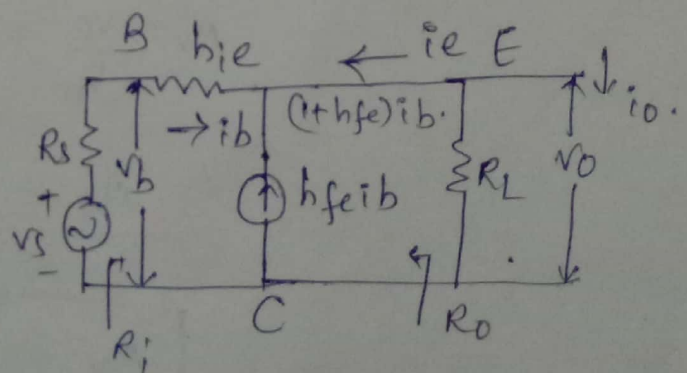 B hie ← ie E ↓ io.
→ ib (1+hfe)ib.
Rs vb hfeib RL vo
+
vs
-
C
Ri Ro